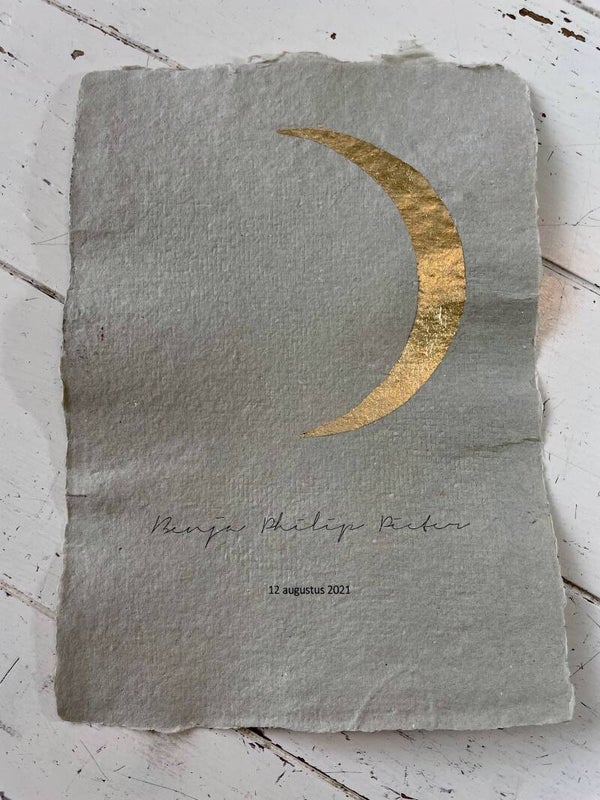 Benja Philip Pieter
12 augustus 2021